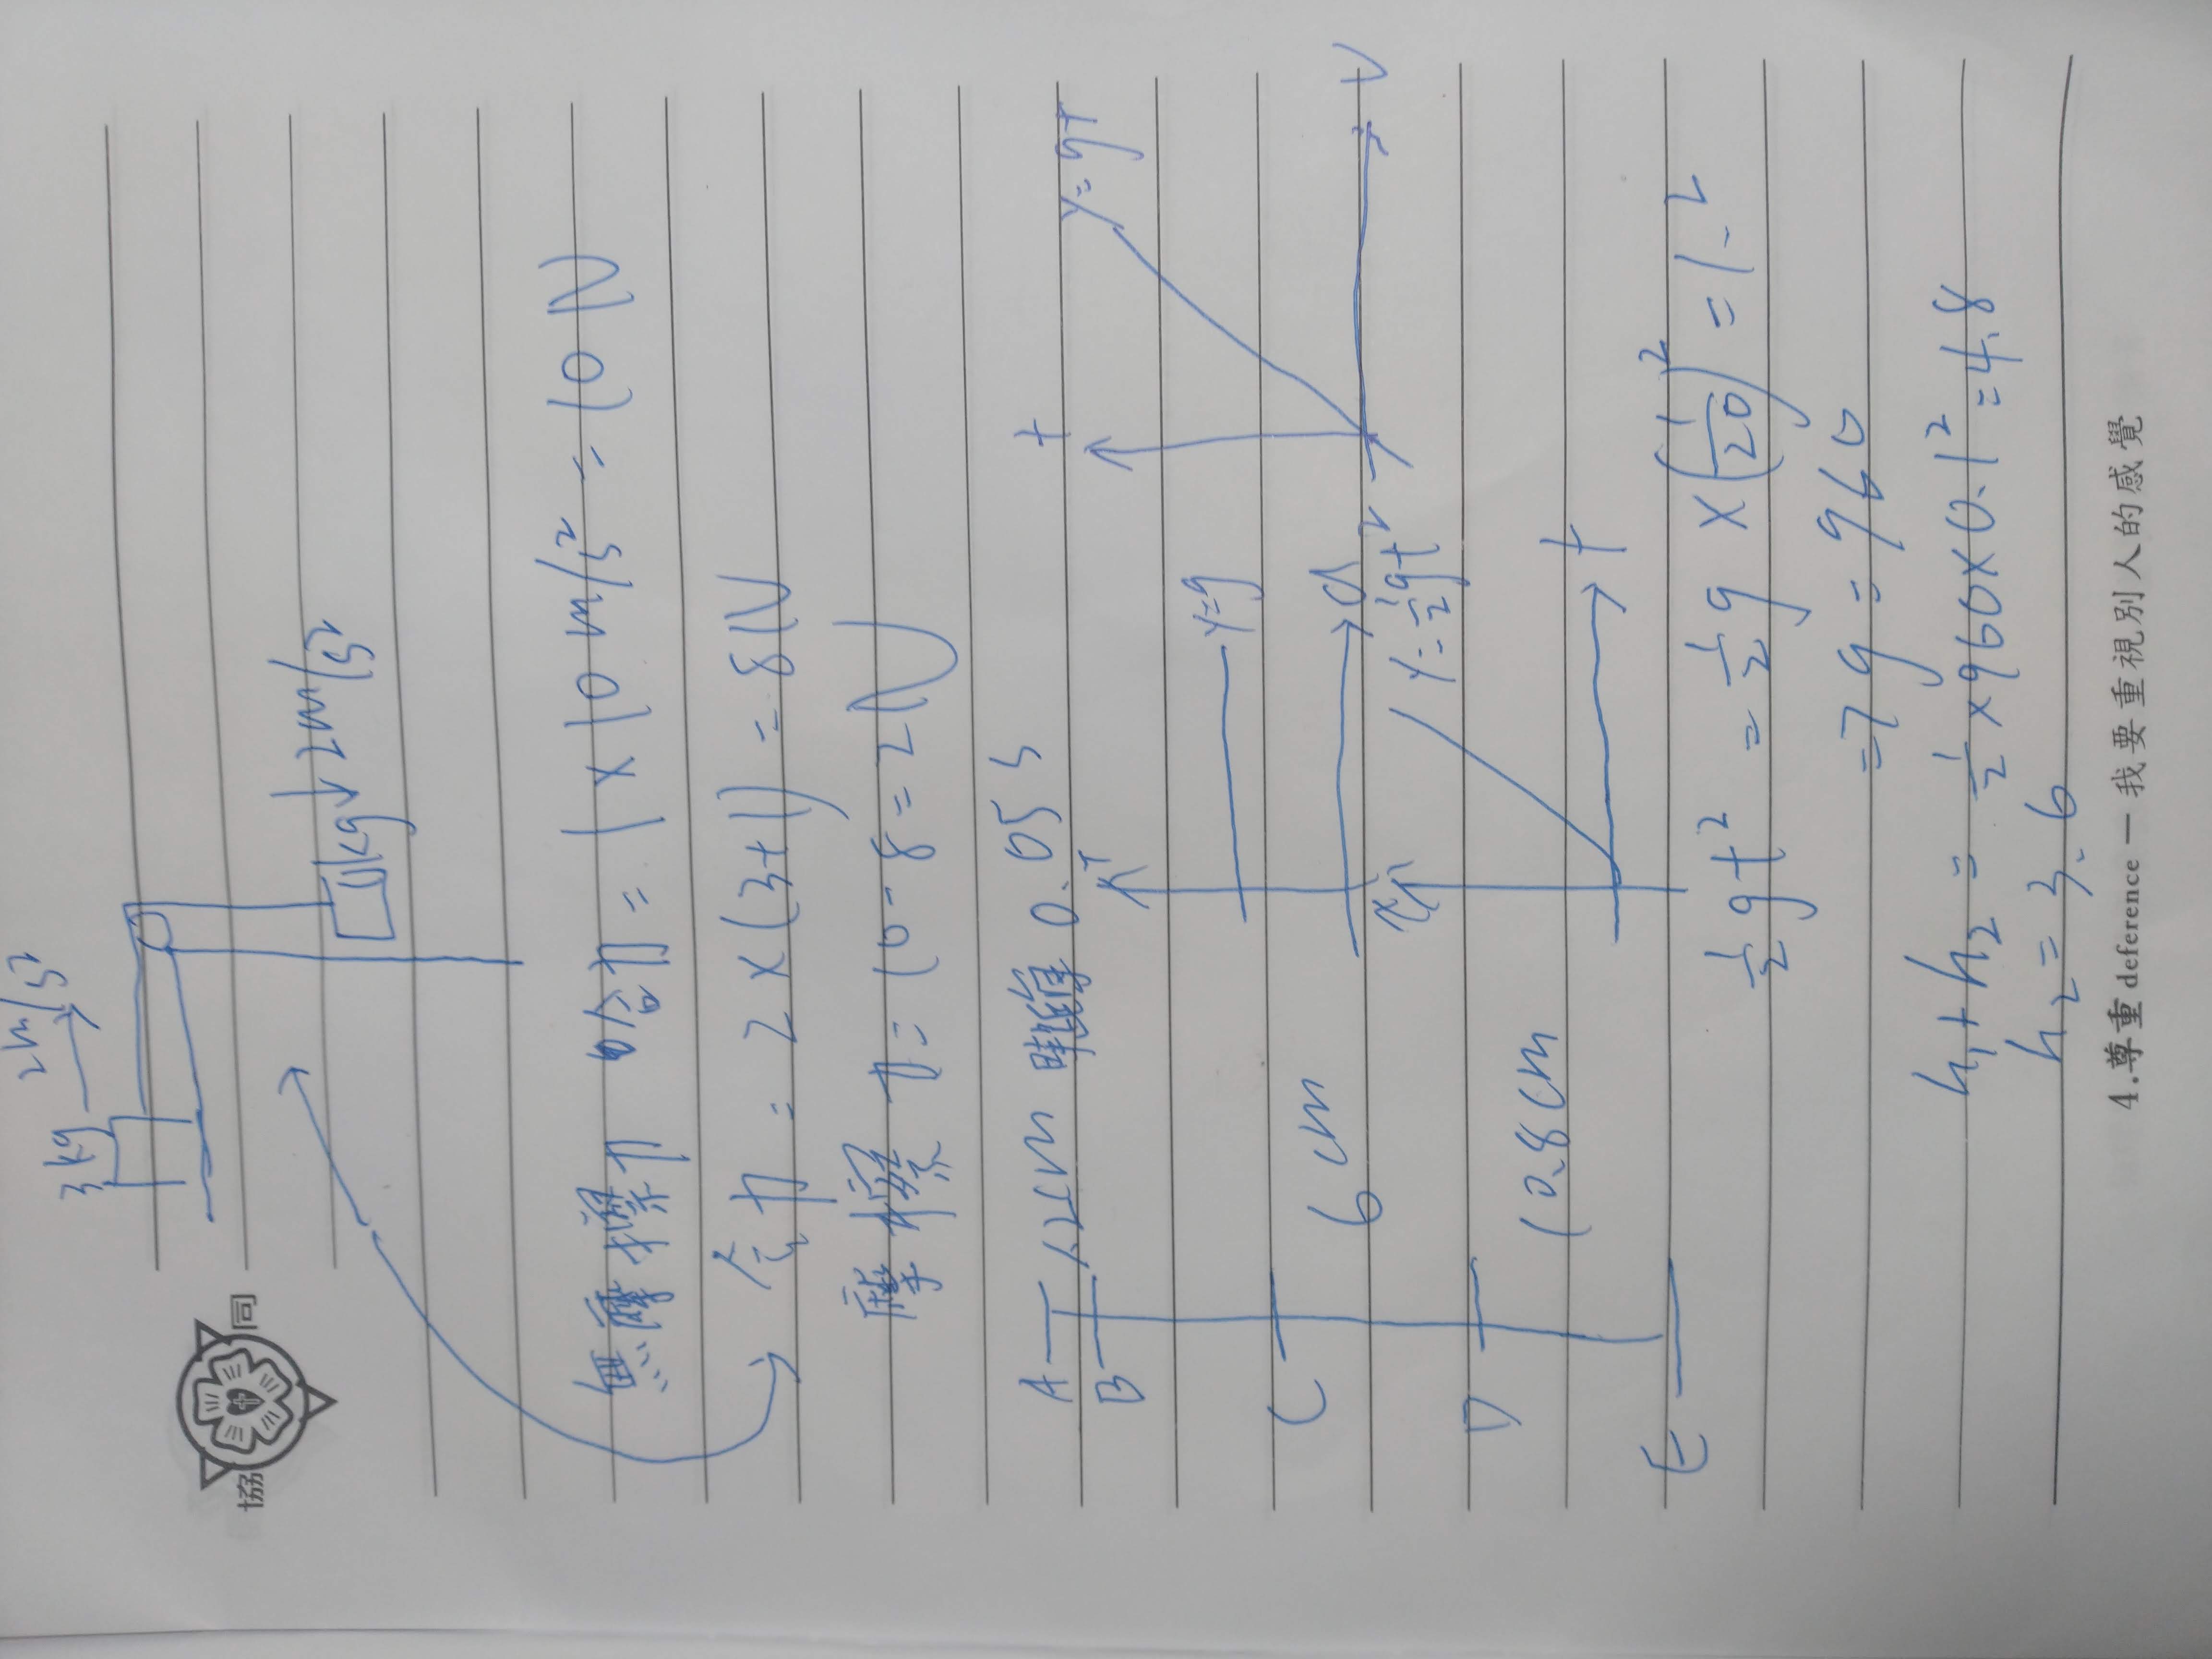 3kg 2m/s²
協 同
1kg↓2m/s²
無摩擦力 時合力 = 1 × 10 m/s² = 10 N
合力 = 2 × (3+1) = 8N
摩擦力 = 10 - 8 = 2N
A 1.2cm 時距每 0.05 s
B
y=g
t
y=gt
C
6cm
a
v
x
y=½gt²
D
10.8cm
t
E
½gt² = ½g × (1/20)² = 1.2
=7 g = 960
h₁+h₂ = ½×960×0.1²=4.8
h₂ = 3.6
4.尊重 deference — 我要重視別人的感覺